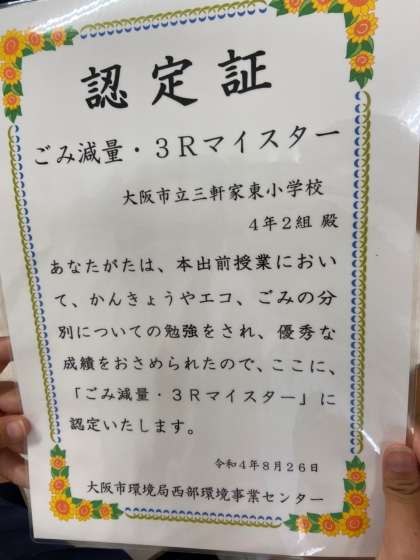 認定証
ごみ減量・3Rマイスター
大阪市立三軒家東小学校
4年2組 殿
あなたがたは、本出前授業におい
て、かんきょうやエコ、ごみの分
別についての勉強をされ、優秀な
成績をおさめられたので、ここに、
「ごみ減量・3Rマイスター」に
認定いたします。
令和4年8月26日
大阪市環境局西部環境事業センター